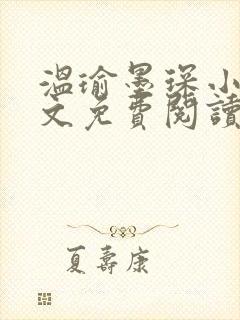 温瑜墨琛小
文免費閱讀
夏壽康